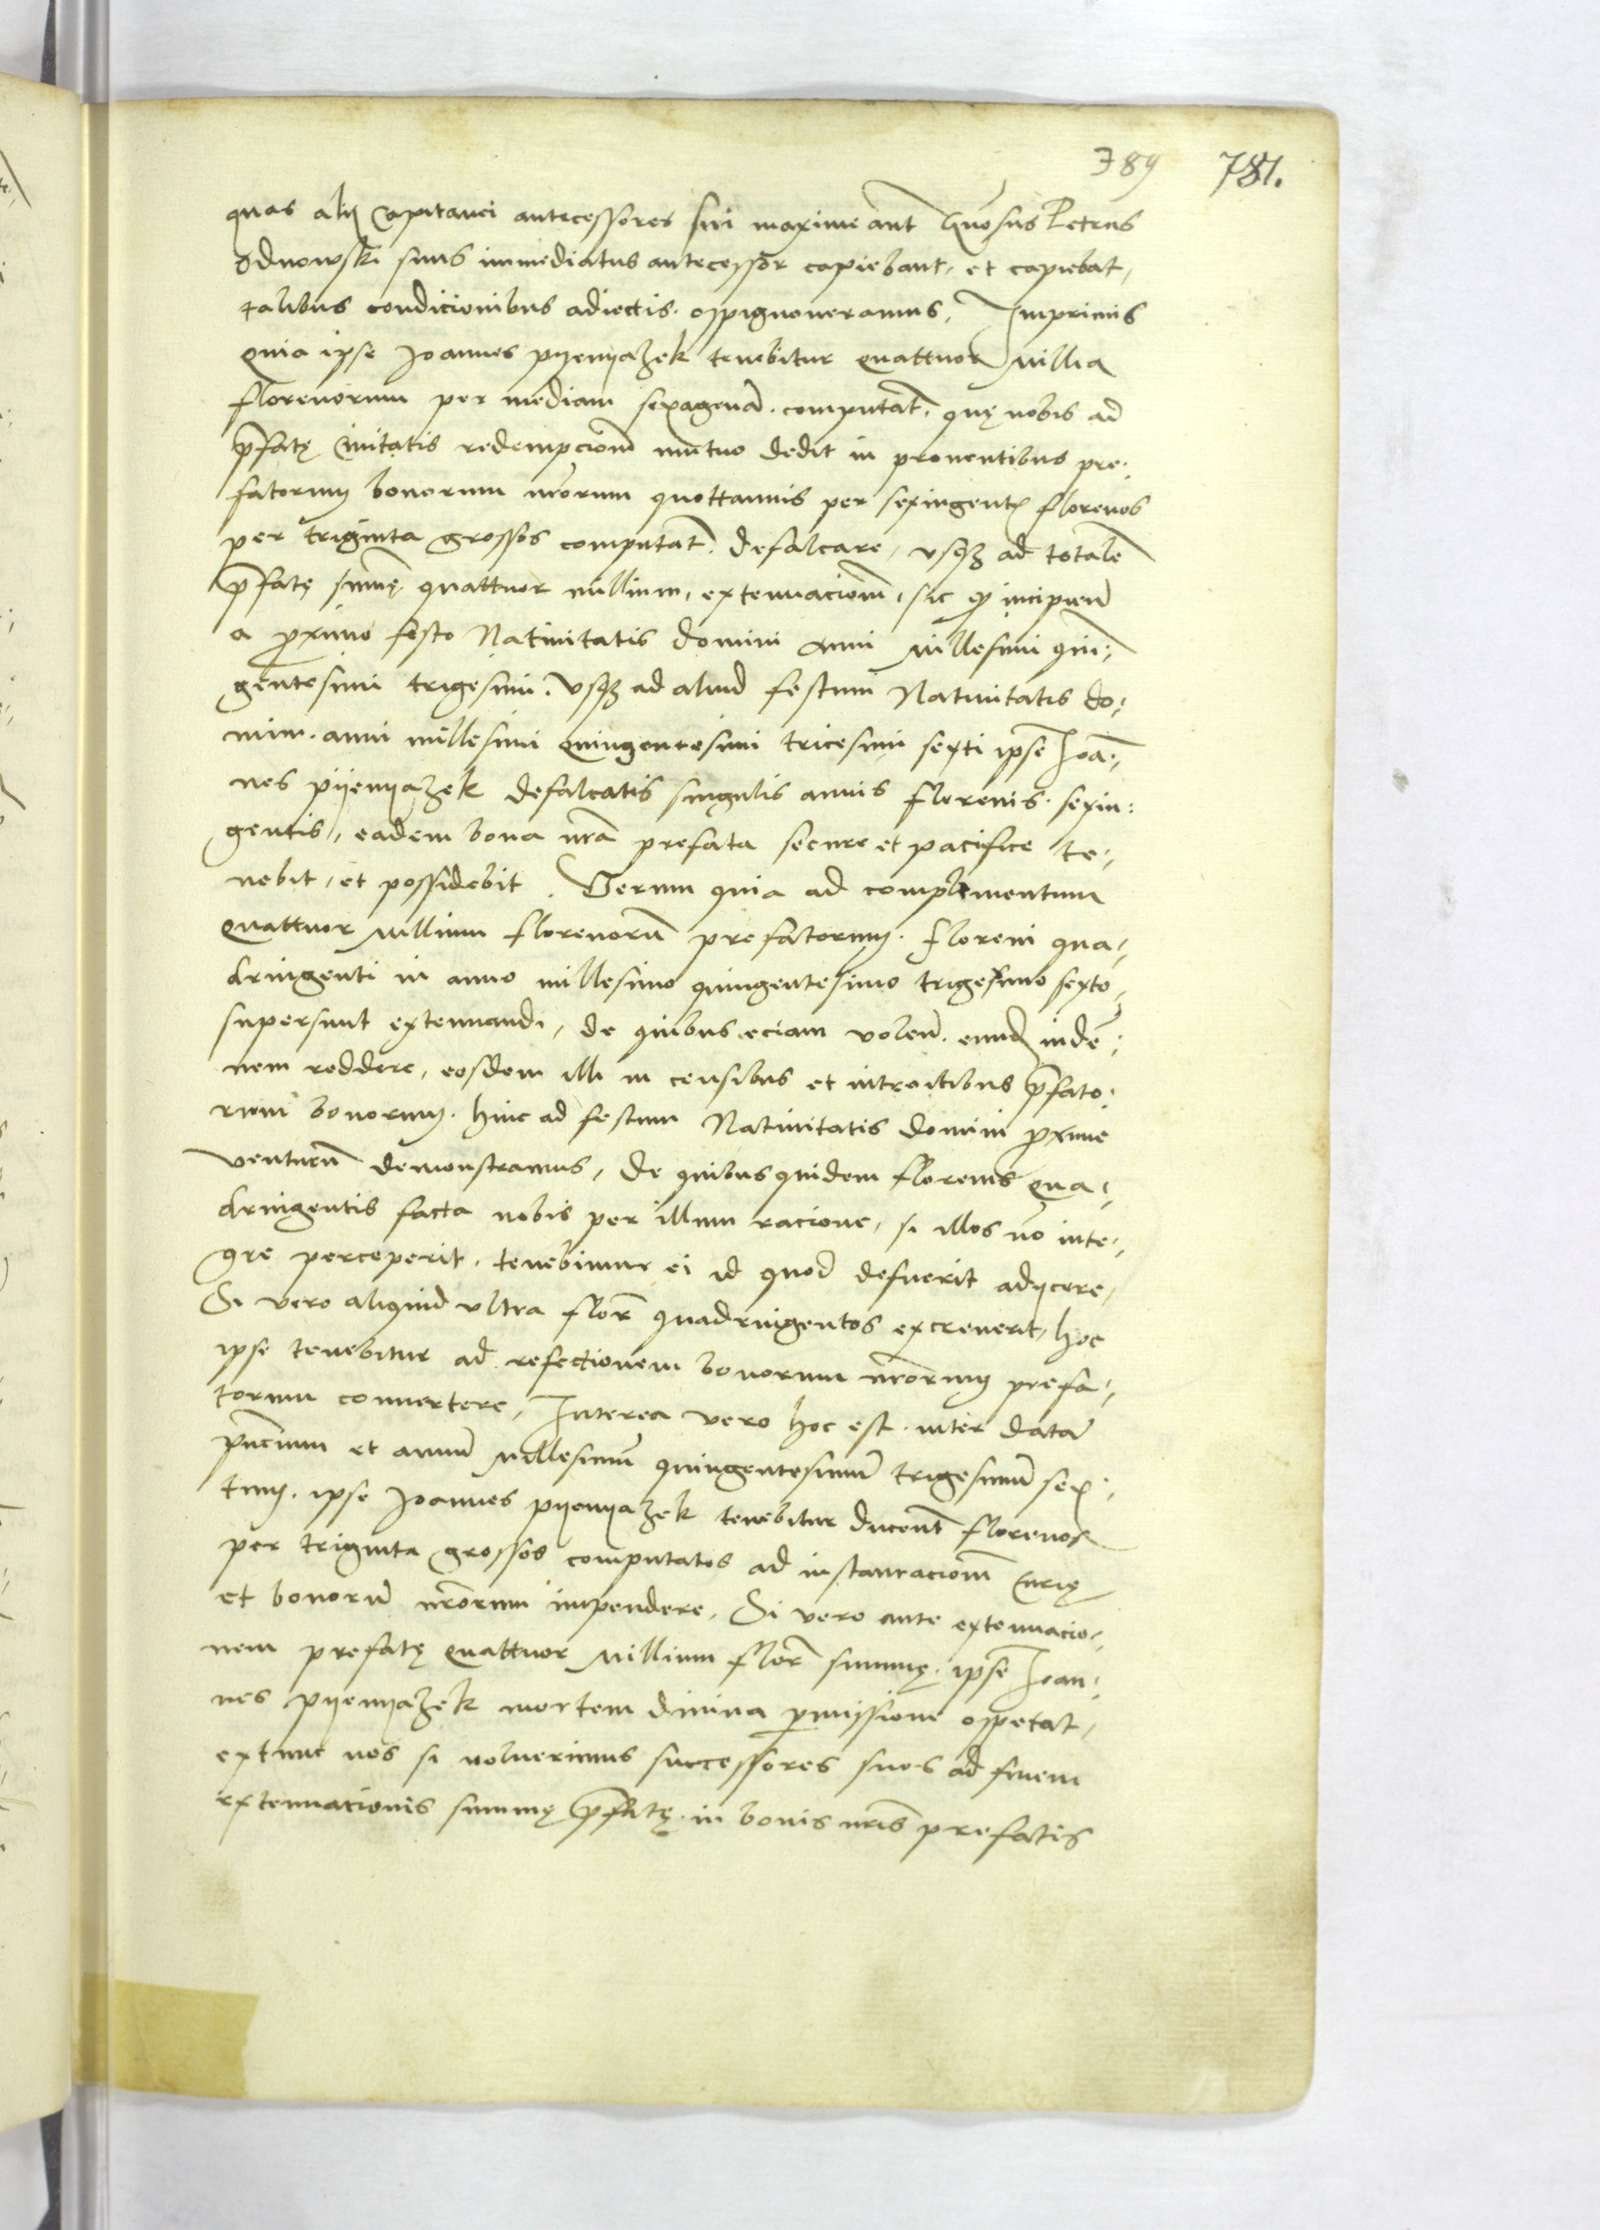 389 781.
quas alij Capitanei antecessores sui maxime aut Gnosus Petrus
Odnowski suus immediatus antecessor capiebant, et capiebat,
talibus condicionibus adiectis. oppignoneramus, Imprimis
quia ipse Joannes pyenyazek tenebitur quattuor Millia
florenorum per mediam sexagena. computat. quę nobis ad
p̄fatę Civitatis redempcionē mutuo dedit in proventibus pre:
fatorum bonorum nr̄orum quottannis per sexingent florenos
per triginta grossos computat. defalcare, vsq3 ad totalē
p̄fatę sum̄ę. quattuor millium, extenuacionē, sic q incipien̄
a proximo festo Nativitatis domini anni Millesimi quin:
gentesimi trigesimi. vsq3 ad aliud festum Nativitatis do:
mini. anni millesimi quingentesimi tricesimi sexti ipse Joā:
nes pyenyazek defalcatis singulis annis florenis. sexin:
gentis, eadem bona nr̄a prefata secure et pacifice te:
nebit, et possidebit. Verum quia ad complementum
quattuor Millium florenorū prefatorum. floreni qua:
dringenti in anno millesimo quingentesimo trigesimo sexto,
supersunt extenuandi, de quibus eciam volen̄. eund indē:
nem reddere, eosdem illi in censibus et introitibus p̄fato:
rum bonorum. hinc ad festum Nativitatis domini proxime
venturū demonstramus, de quibus quidem florenis qua:
dringentis facta nobis per illum racione, si illos nō inte:
gre perceperit, tenebimur ei id quod defuerit adijcere,
Si vero aliquid vltra flor̄ quadringentos excreverit, hoc
ipse tenebitur ad refectionem bonorum nr̄orum prefa:
torum convertere, Interea vero hoc est. inter datā
pn̄cium et annū Millesimū quingentesimū trigesimū sex:
tum. ipse Joannes pyenyazek tenebitur ducent florenos
per triginta grossos computatos ad instauracionē Curię
et bonorū nr̄orum impendere, Si vero ante extenuacio:
nem prefatę quattuor Millium flor̄ summę. ipse Joan:
nes pyenyazek mortem divina p̄missione oppetat,
extunc nos si voluerimus successores suos ad finem
extenuacionis summę p̄fatę. in bonis nr̄is prefatis